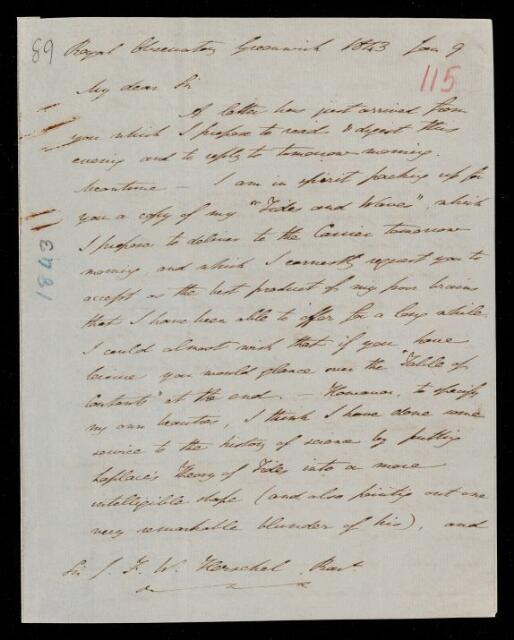 89
Royal Observatory Greenwich 1843 Jan 9
115
My dear Sir
A letter has just arrived from
you which I propose to read & digest this
evening and to reply to tomorrow morning.
Meantime — I am in spirit packing up for
you a copy of my "Tides and Waves", which
I propose to deliver to the Carrier tomorrow
morning, and which I earnestly request you to
accept as the best product of my poor brains
that I have been able to offer for a long while.
I could almost wish that if you have
leisure you would glance over the "Table of
Contents" at the end. — However, to specify
my own beauties, I think I have done some
service to the history of science by putting
Laplace's Theory of Tides into a more
intelligible shape (and also pointing out one
very remarkable blunder of his), and
Sir J. F. W. Herschel Bart
1843